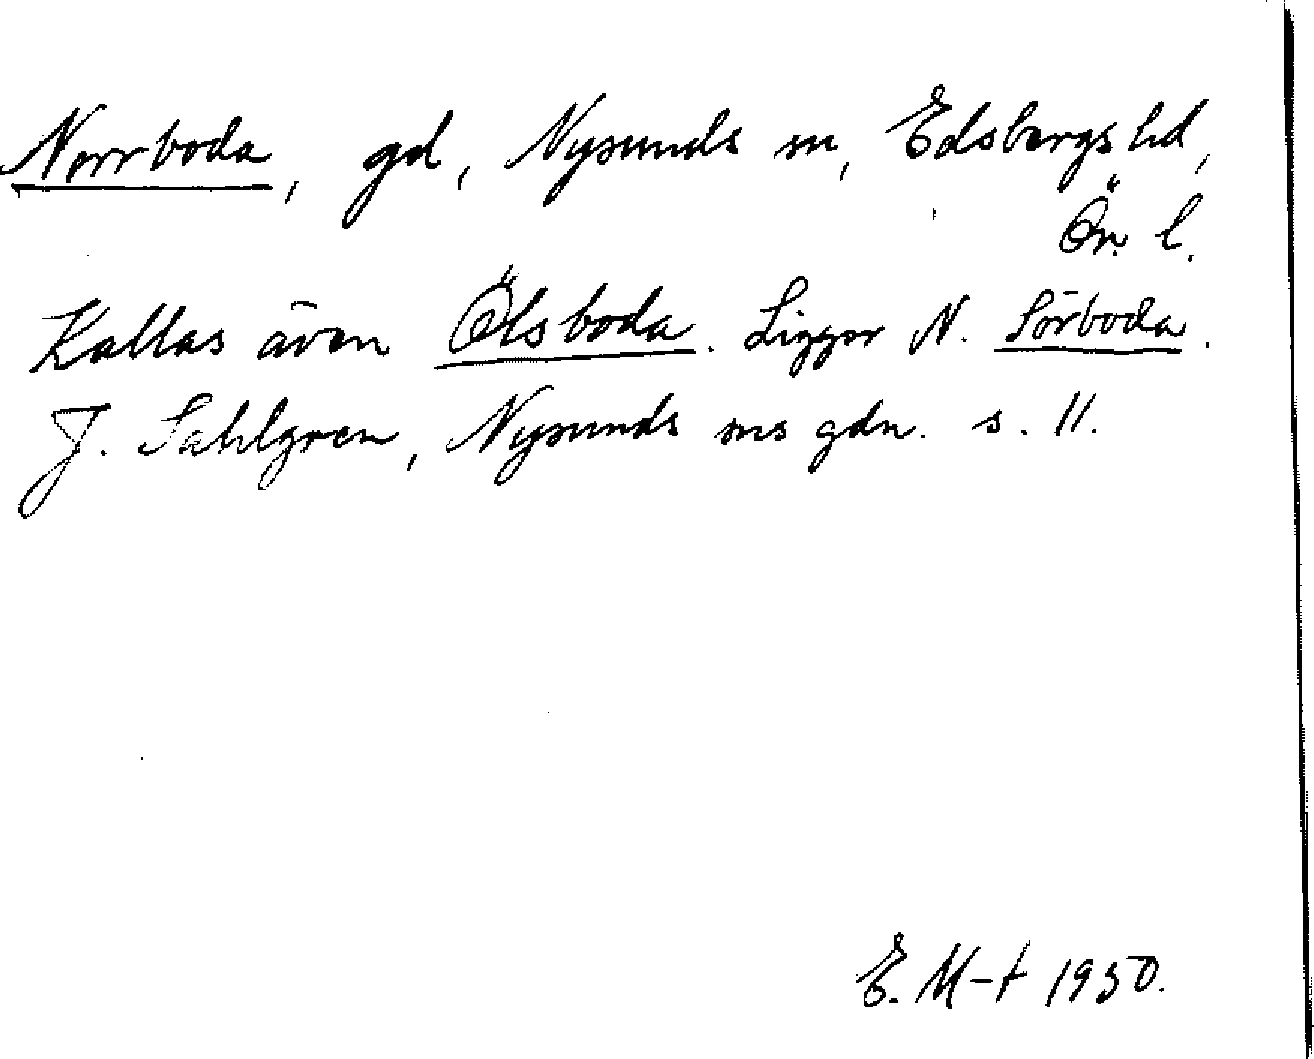 Norrboda, gd, Nysunds sn, Edsbergs hd,
Ör. l.
Kallas även Ölsboda. Ligger N. Sörboda.
J. Sahlgren, Nysunds sns gdn. s. 11.
E. M-t 1950.